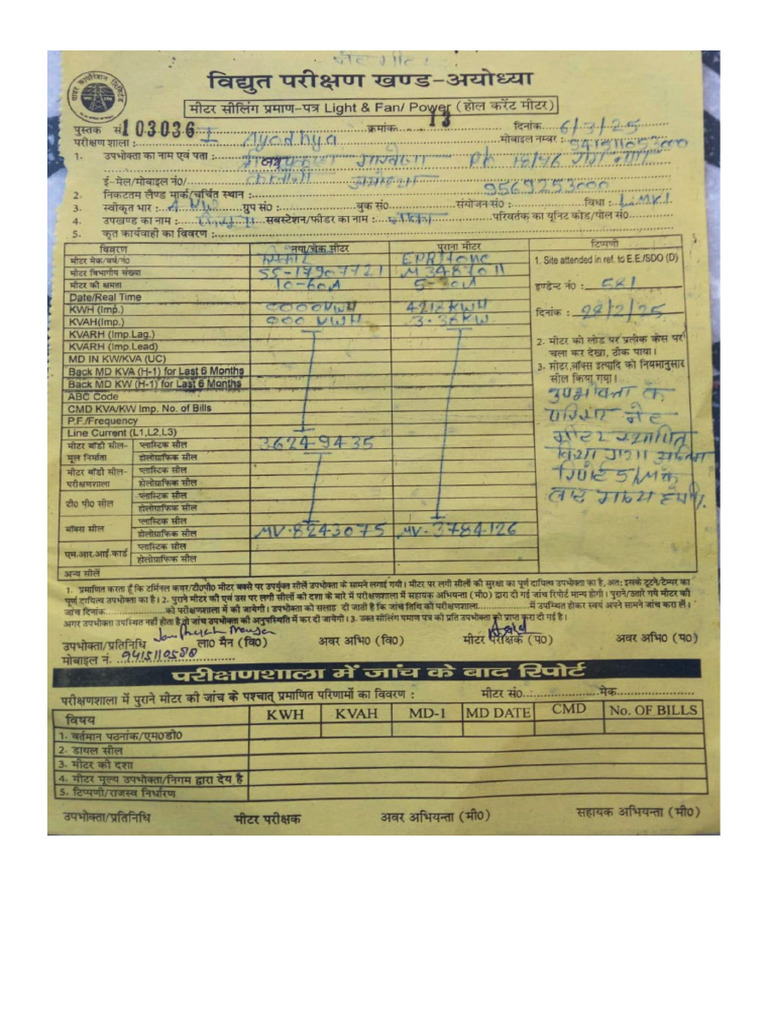 विद्युत परीक्षण खण्ड-अयोध्या
मीटर सीलिंग प्रमाण-पत्र Light & Fan/ Power (होल करेंट मीटर)
पुस्तक सं 103036 क्रमांक 13 दिनांक 6/3/25
परीक्षण शाला : I Ayodhya मोबाइल नम्बर :
1. उपभोक्ता का नाम एवं पता :
ई-मेल/मोबाइल नं0/ अयोध्या 9569253000
2. निकटतम लैण्ड मार्क/चर्चित स्थान :
3. स्वीकृत भार : 4 KW ग्रुप सं0 : बुक सं0 संयोजन सं0 : विधा : LMV1
4. उपखण्ड का नाम : सबस्टेशन/फीडर का नाम : परिवर्तक का यूनिट कोड/पोल सं0
5. कृत कार्यवाही का विवरण :
विवरण नया/चेक मीटर पुराना मीटर टिप्पणी
मीटर मेक/वर्ष/नं0
मीटर विभागीय संख्या 55-17907721 M348701
मीटर की क्षमता 10-60A 5-30A
1. Site attended in ref. to E.E./SDO (D)
इण्डेन्ट नं0 : 581
Date/Real Time
KWH (Imp.) 0000KWH 4218KWH
KVAH(Imp.) 000 KVAH 3.36KW
दिनांक : 28/2/25
KVARH (Imp.Lag.)
KVARH (Imp.Lead)
MD IN KW/KVA (UC)
2. मीटर को लोड पर प्रत्येक फेस पर चला कर देखा, ठीक पाया।
Back MD KVA (H-1) for Last 6 Months
Back MD KW (H-1) for Last 6 Months
3. मीटर,बॉक्स इत्यादि को नियमानुसार सील किया गया।
ABC Code
CMD KVA/KW Imp. No. of Bills
P.F./Frequency
Line Current (L1,L2,L3)
उपभोक्ता के
परिसर
मीटर स्थापित
किया गया
मीटर बॉडी सील-मूल निर्माता प्लास्टिक सील 3624-9435
होलोग्राफिक सील
मीटर बॉडी सील-परीक्षणशाला प्लास्टिक सील
होलोग्राफिक सील
टी0 पी0 सील प्लास्टिक सील
होलोग्राफिक सील
बॉक्स सील प्लास्टिक सील
होलोग्राफिक सील MV-8243075 MV-3784126
एम.आर.आई.कार्ड प्लास्टिक सील
होलोग्राफिक सील
अन्य सीलें
1. प्रमाणित करता हूँ कि टर्मिनल कवर/टी0पी0 मीटर बक्से पर उपर्युक्त सीलें उपभोक्ता के सामने लगाई गयी। मीटर पर लगी सीलों की सुरक्षा का पूर्ण दायित्व उपभोक्ता का है, अतः इसके टूटने/टेम्पर का
पूर्ण दायित्व उपभोक्ता का है। 2. पुराने मीटर की एवं उस पर लगी सीलों की दशा के बारे में परीक्षणशाला में सहायक अभियन्ता (मी०) द्वारा दी गई जांच रिपोर्ट मान्य होगी। पुराने/उतारे गये मीटर की
जांच दिनांक को परीक्षणशाला में की जायेगी। उपभोक्ता को सलाह दी जाती है कि जांच तिथि को परीक्षणशाला में उपस्थित होकर स्वयं अपने सामने जांच करा लें।
अगर उपभोक्ता उपस्थित नहीं होता है तो जांच उपभोक्ता की अनुपस्थिति में कर दी जायेगी। 3. उक्त सीलिंग प्रमाण पत्र की प्रति उपभोक्ता को प्राप्त करा दी गई है।
उपभोक्ता/प्रतिनिधि ला0 मैन (वि0) अवर अभि0 (वि0) मीटर परीक्षक (प0) अवर अभि0 (प0)
मोबाइल नं. 9415110580
परीक्षणशाला में जांच के बाद रिपोर्ट
परीक्षणशाला में पुराने मीटर की जांच के पश्चात् प्रमाणित परिणामों का विवरण : मीटर सं0 मेक
विषय KWH KVAH MD-1 MD DATE CMD No. OF BILLS
1. वर्तमान पठनांक/एम0डी0
2. डायल सील
3. मीटर की दशा
4. मीटर मूल्य उपभोक्ता/निगम द्वारा देय है
5. टिप्पणी/राजस्व निर्धारण
उपभोक्ता/प्रतिनिधि मीटर परीक्षक अवर अभियन्ता (मी0) सहायक अभियन्ता (मी0)